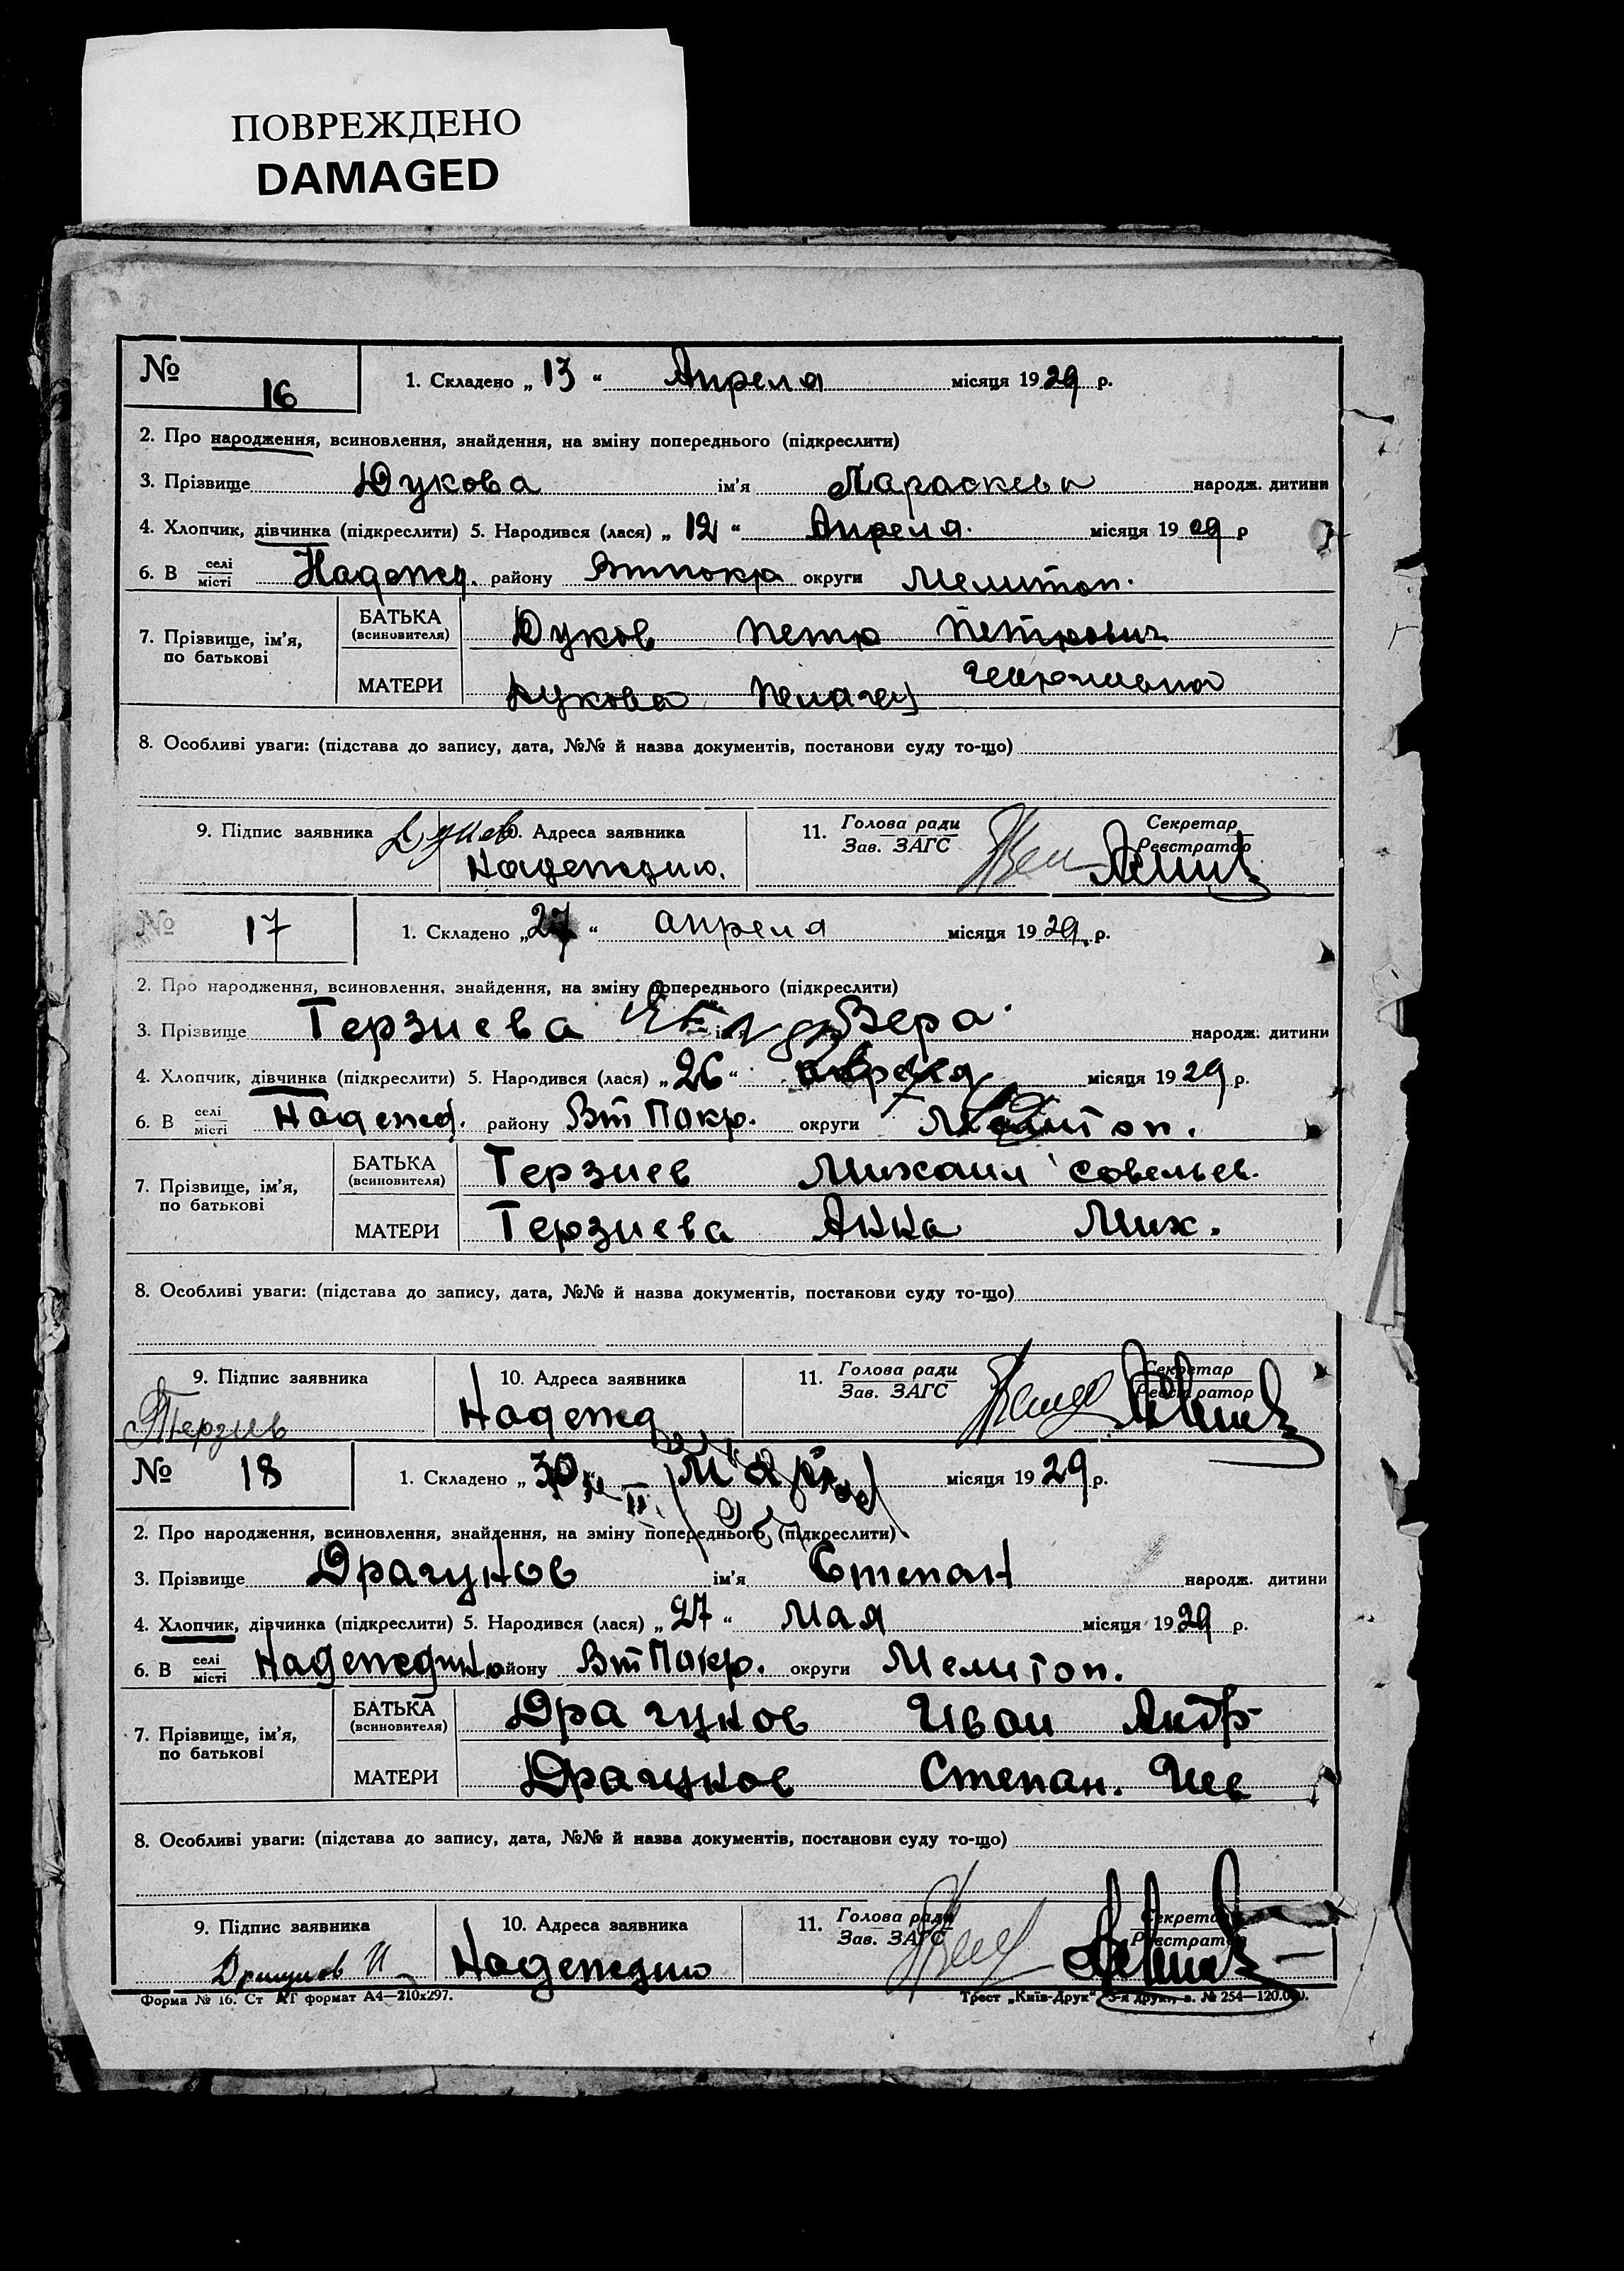 ПОВРЕЖДЕНО
DAMAGED
№ 16 1. Складено „ 13 “ Апреля місяця 1929 р.
2. Про народження, всиновлення, знайдення, на зміну попереднього (підкреслити)
3. Прізвище Дукова ім'я Параскева народж. дитини
4. Хлопчик, дівчинка (підкреслити) 5. Народився (лася) „ 12 “ Апреля. місяця 1929 р
6. В селі/місті Надежд. району Втпокр округи Мелитоп.
7. Прізвище, ім'я, по батькові
БАТЬКА (всиновителя) Дуков Петр Петрович
МАТЕРИ Дукова Пелагея
8. Особливі уваги: (підстава до запису, дата, №№ й назва документів, постанови суду то-що)
9. Підпис заявника 10. Адреса заявника 11. Голова ради Секретар
Зав. ЗАГС Реєстратор
Надеждино.
№ 17 1. Складено „ 27 “ апреля місяця 1929 р.
2. Про народження, всиновлення, знайдення, на зміну попереднього (підкреслити)
3. Прізвище Терзиева ім'я Вера народж. дитини
4. Хлопчик, дівчинка (підкреслити) 5. Народився (лася) „ 26 “ місяця 1929 р.
6. В селі/місті Надежд. району Вт Покр. округи Мелитоп.
7. Прізвище, ім'я, по батькові
БАТЬКА (всиновителя) Терзиев Михаил Совельев.
МАТЕРИ Терзиева Анна Мих.
8. Особливі уваги: (підстава до запису, дата, №№ й назва документів, постанови суду то-що)
9. Підпис заявника 10. Адреса заявника 11. Голова ради Секретар
Зав. ЗАГС Реєстратор
Терзиев Надежд
№ 18 1. Складено „ 30 “ місяця 1929 р.
2. Про народження, всиновлення, знайдення, на зміну попереднього (підкреслити)
3. Прізвище Драгунов ім'я Степан народж. дитини
4. Хлопчик, дівчинка (підкреслити) 5. Народився (лася) „ 27 “ Мая місяця 1929 р.
6. В селі/місті Надеждино району Вт Покр. округи Мелитоп.
7. Прізвище, ім'я, по батькові
БАТЬКА (всиновителя) Драгунов Иван Андр
МАТЕРИ Драгунов Степан. Ив
8. Особливі уваги: (підстава до запису, дата, №№ й назва документів, постанови суду то-що)
9. Підпис заявника 10. Адреса заявника 11. Голова ради Секретар
Зав. ЗАГС Реєстратор
Драгунов И Надеждино
Форма № 16. Ст АТ формат А4—210х297. Трест „Київ-Друк“ 3-я друк. з. № 254—120.000.